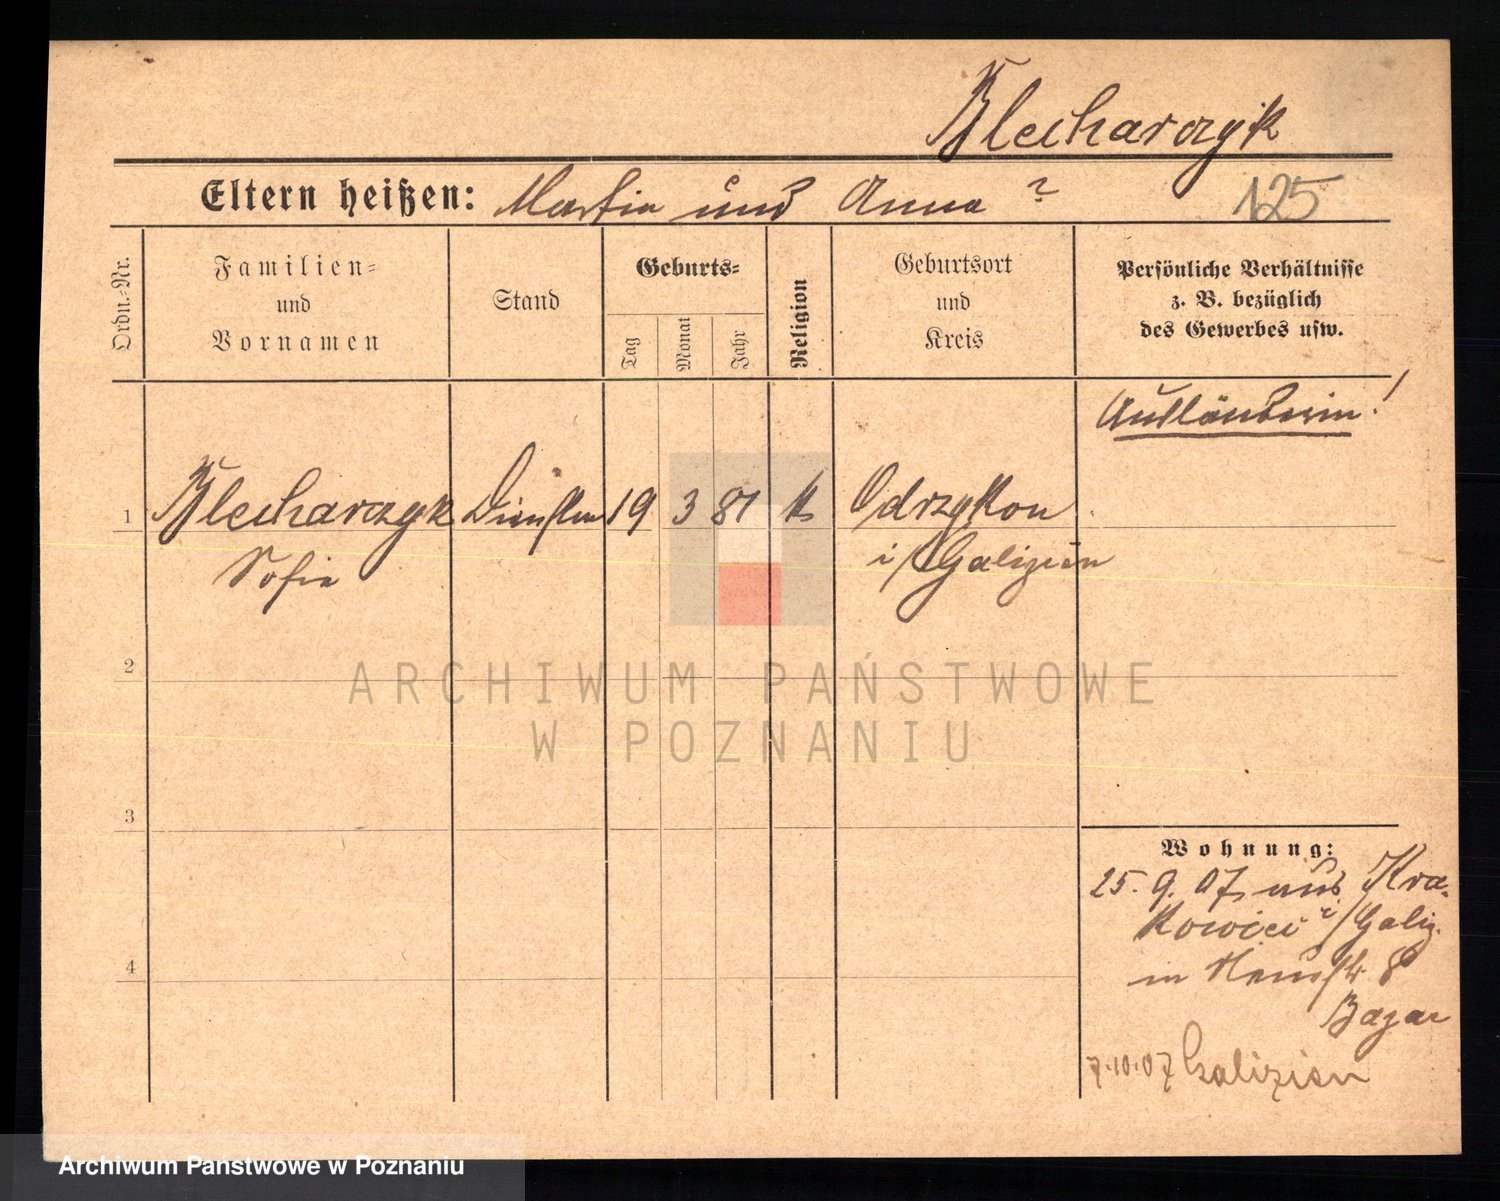 Blecharczyk
Eltern heißen: Martin und Anna ?
125
Ordn.-Nr.
Familien-
und
Vornamen
Stand
Geburts-
Tag
Monat
Jahr
Religion
Geburtsort
und
Kreis
Persönliche Verhältnisse
z. B. bezüglich
des Gewerbes usw.
Ausländerin!
1 Blecharczyk 19 3 81 k Odrzykon
Sofie i/Galizien
2
ARCHIWUM PAŃSTWOWE
W POZNANIU
3
Wohnung:
25. 9. 07 aus Kra-
kowiec i/Galiz.
in Neustr 8
Bazar
4
7.10.07 Galizien
Archiwum Państwowe w Poznaniu